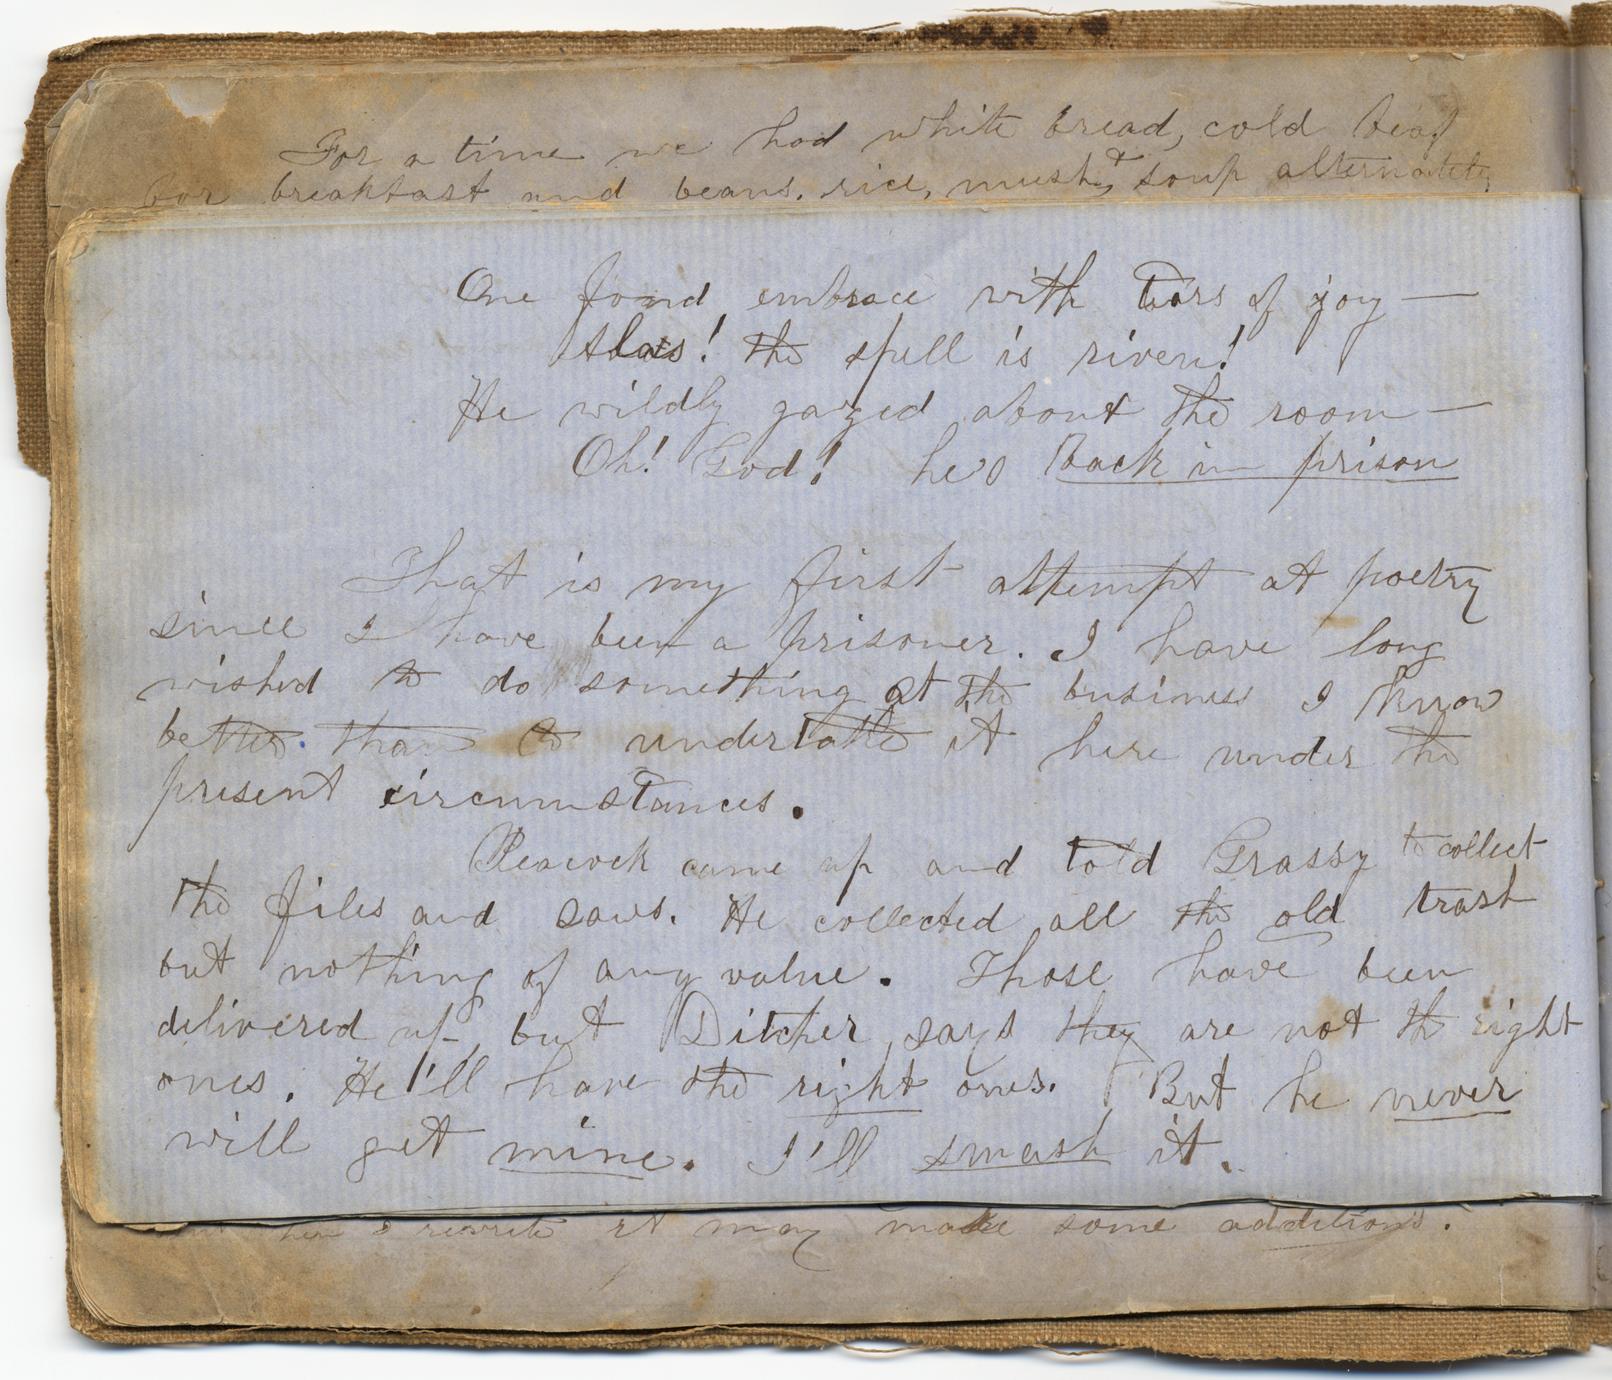 For a time we had white bread, cold beef
for breakfast and beans, rice, mush, & soup alternately
One fond embrace with tears of joy —
Alas! the spell is riven!
He wildly gazed about the room —
Oh! God! he's back in prison
That is my first attempt at poetry
since I have been a prisoner. I have long
wished to do something at the business I know
better than to undertake it here under the
present circumstances.
Peacock came up and told Grassy to collect
the files and saws. He collected all the old trash
but nothing of any value. Those have been
delivered up but Ditcher says they are not the right
ones. He I'll have the right ones. But he never
will get mine. I'll smash it.
I rewrite it may make some additions.